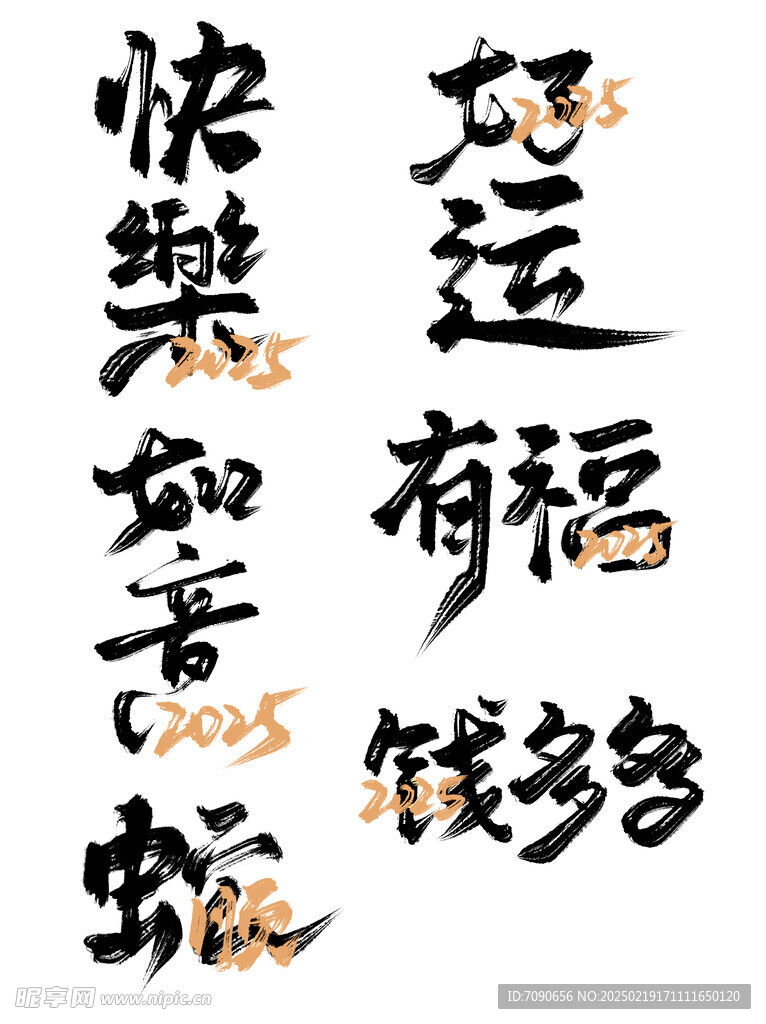 快樂
2025
好运
2025
如意
2025
有福
2025
钱多多
2025
蛇
顺
昵享网 www.nipic.cn
ID:7090656 NO:20250219171111650120